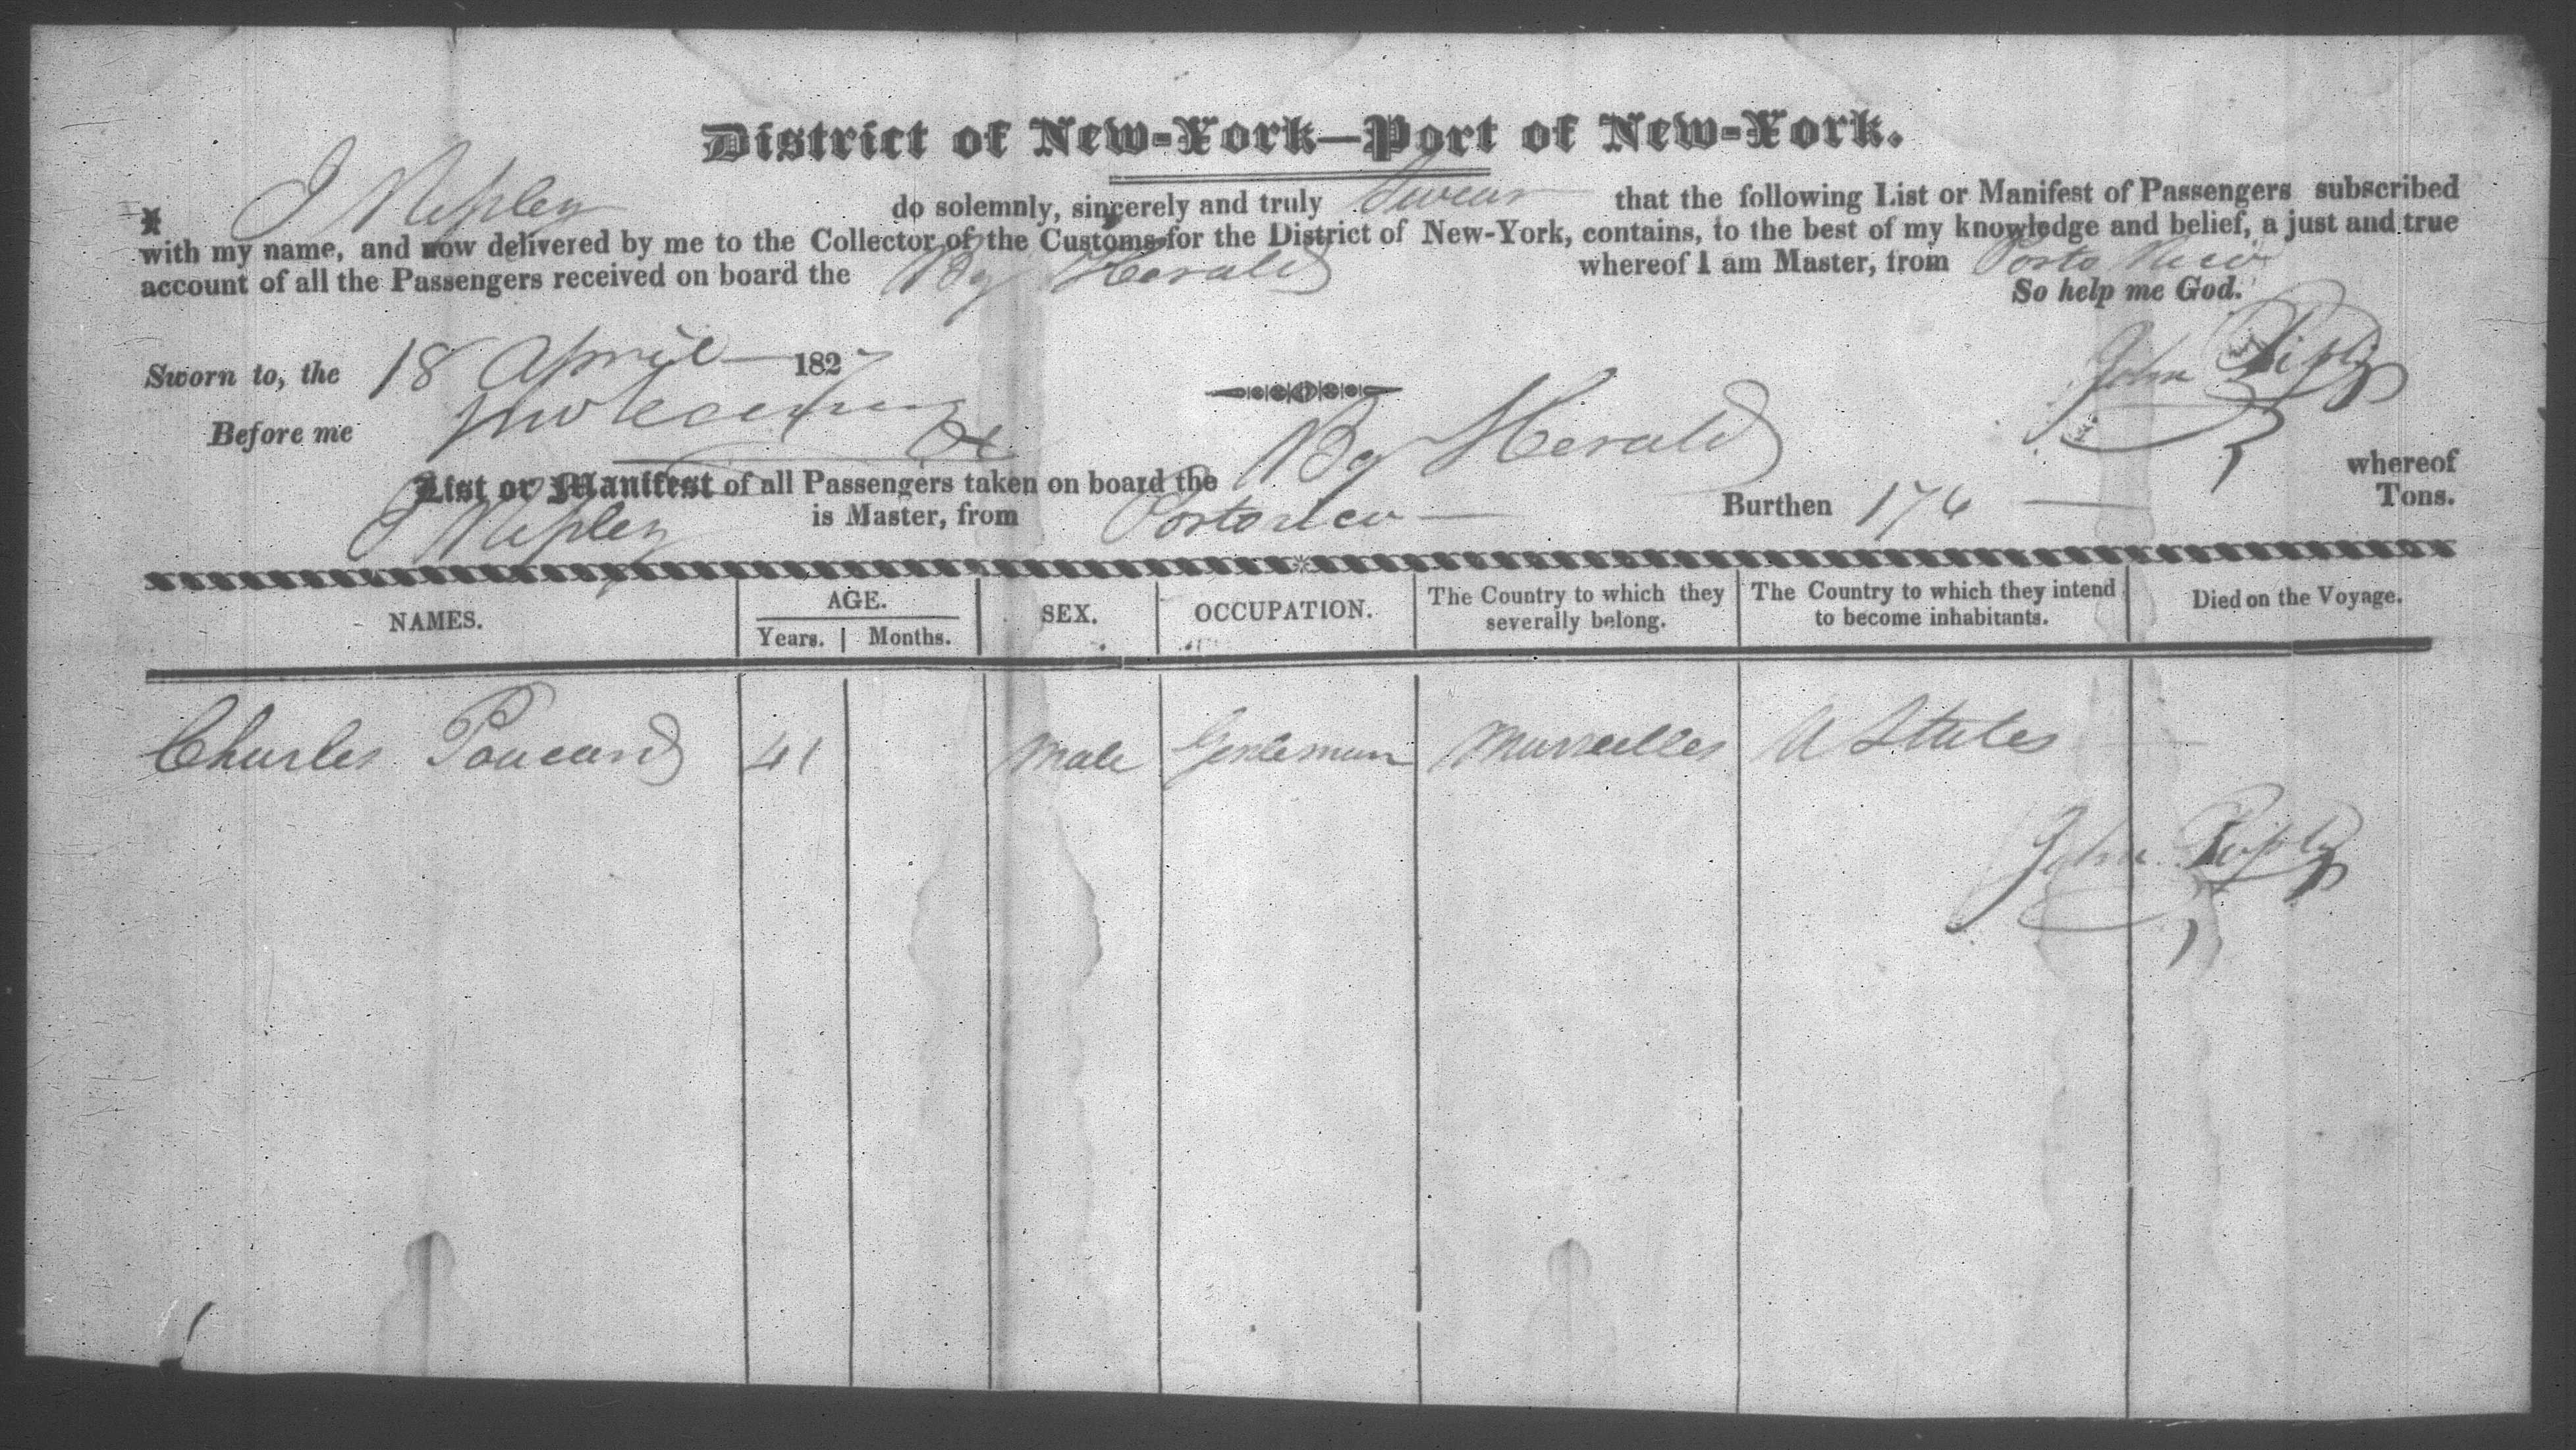 District of New-York—Port of New-York.
I, J Ripley do solemnly, sincerely and truly Swear that the following List or Manifest of Passengers subscribed
with my name, and now delivered by me to the Collector of the Customs for the District of New-York, contains, to the best of my knowledge and belief, a just and true
account of all the Passengers received on board the Bg Herald whereof I am Master, from Porto Rico
So help me God.
Sworn to, the 18 April 1827
John Ripley
Before me
List or Manifest of all Passengers taken on board the Bg Herald whereof
J Ripley is Master, from Porto Rico Burthen 176 Tons.
NAMES. AGE. SEX. OCCUPATION. The Country to which they severally belong. The Country to which they intend to become inhabitants. Died on the Voyage.
Years. Months.
Charles 41 Male Gentleman Marseilles U States
John Ripley